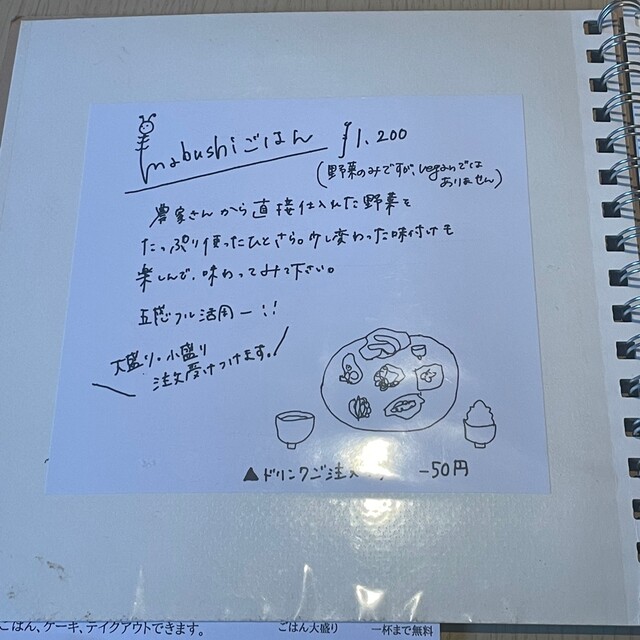 mabushiごはん ¥1,200
(野菜のみですが、veganでは
ありません)
農家さんから直接仕入れた野菜を
たっぷり使ったひとさら。少し変わった味付けも
楽しんで、味わってみて下さい。
五感フル活用ー!!
大盛り・小盛り
注文受けつけます。
▲ドリンクご注文 -50円
ごはん、ケーキ、テイクアウトできます。
ごはん大盛り 一杯まで無料